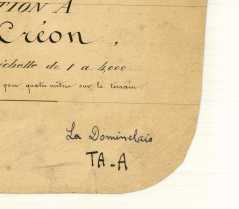 TION A
Créon,
échelle de 1 à 4,000
pour quatre mètres sur le terrain
La Dominelais
TA-A